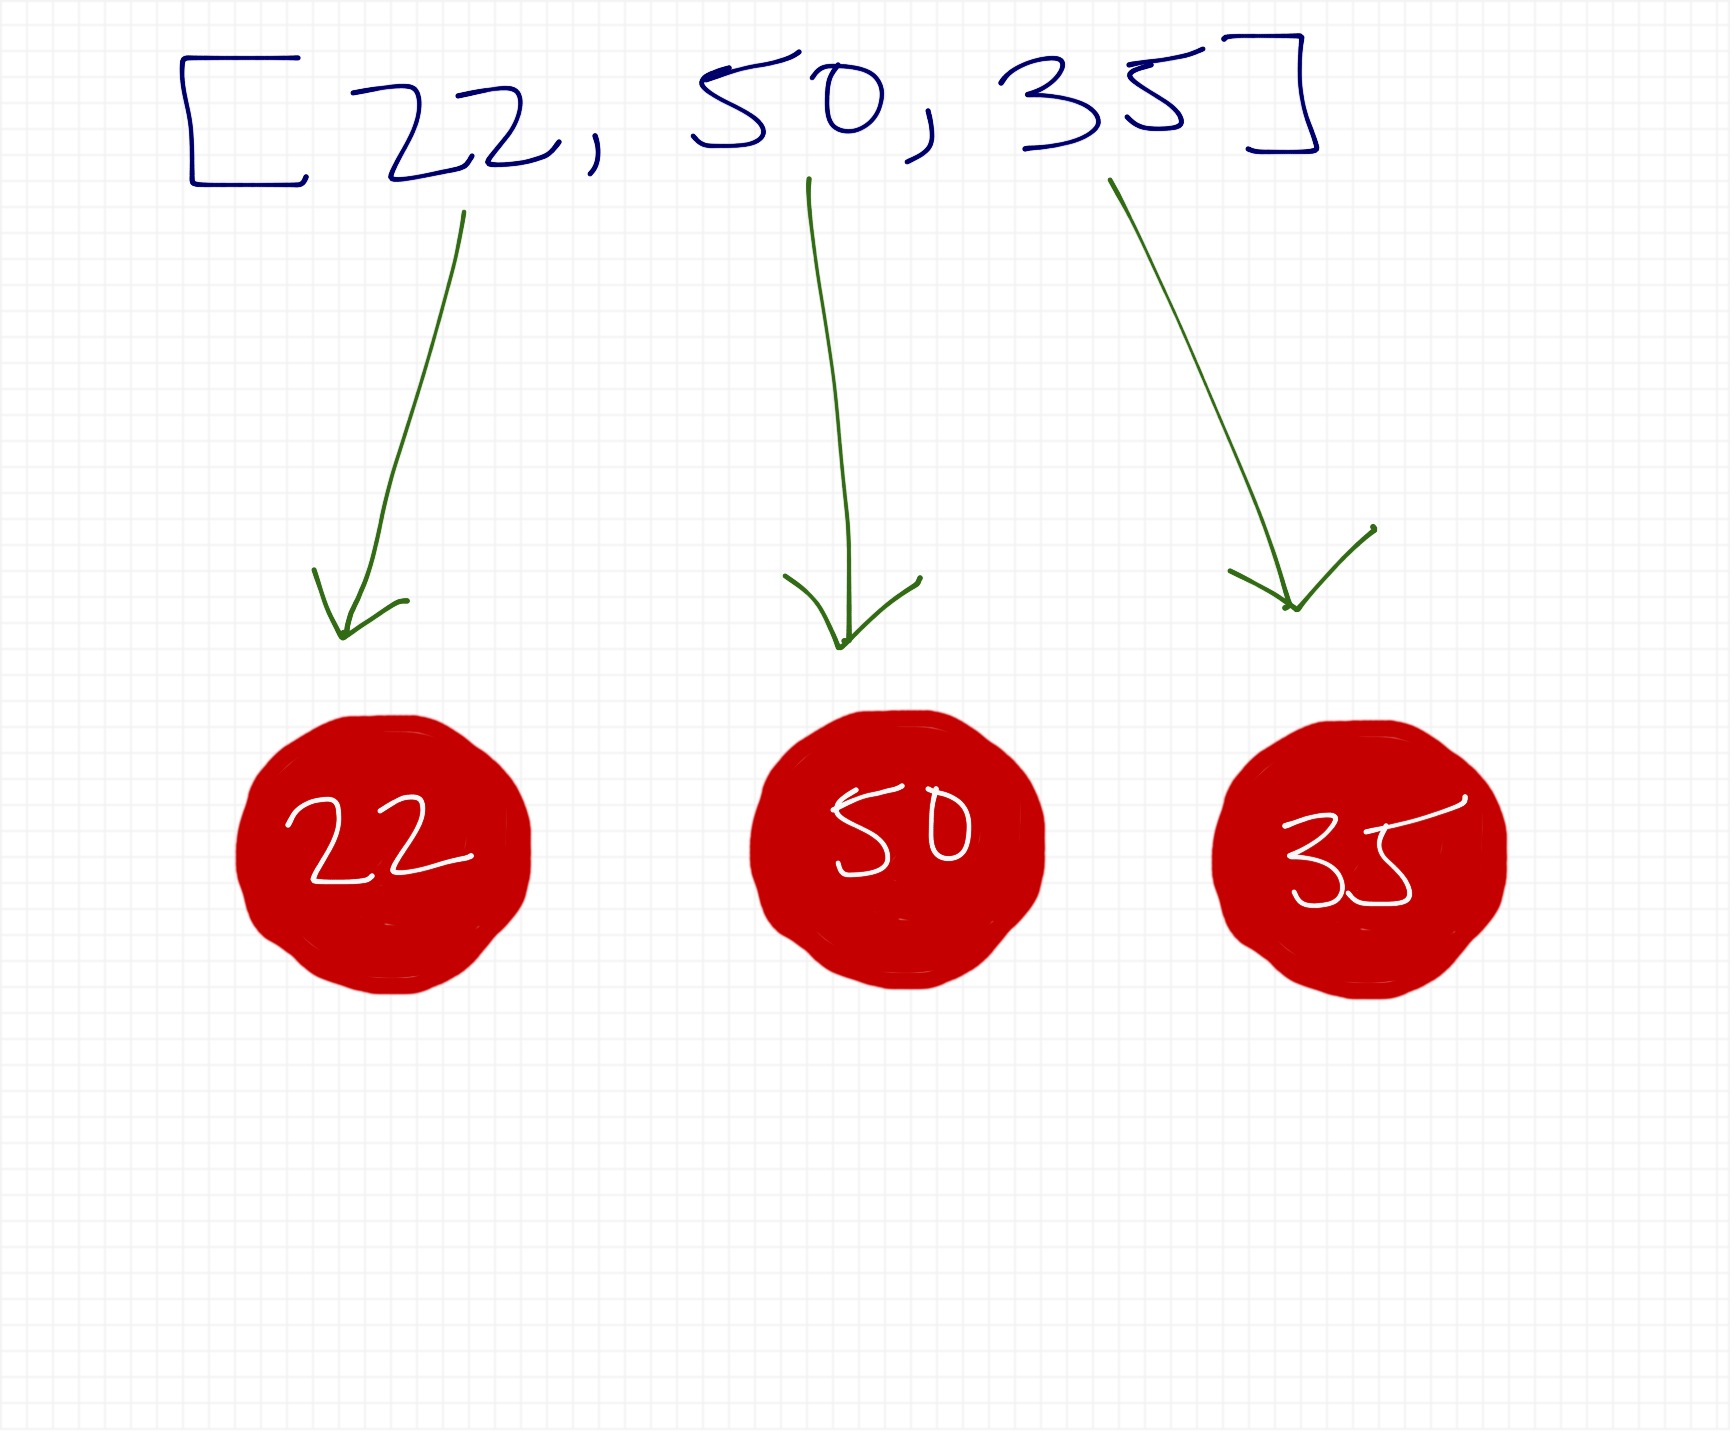 [22, 50, 35]
22 50 35